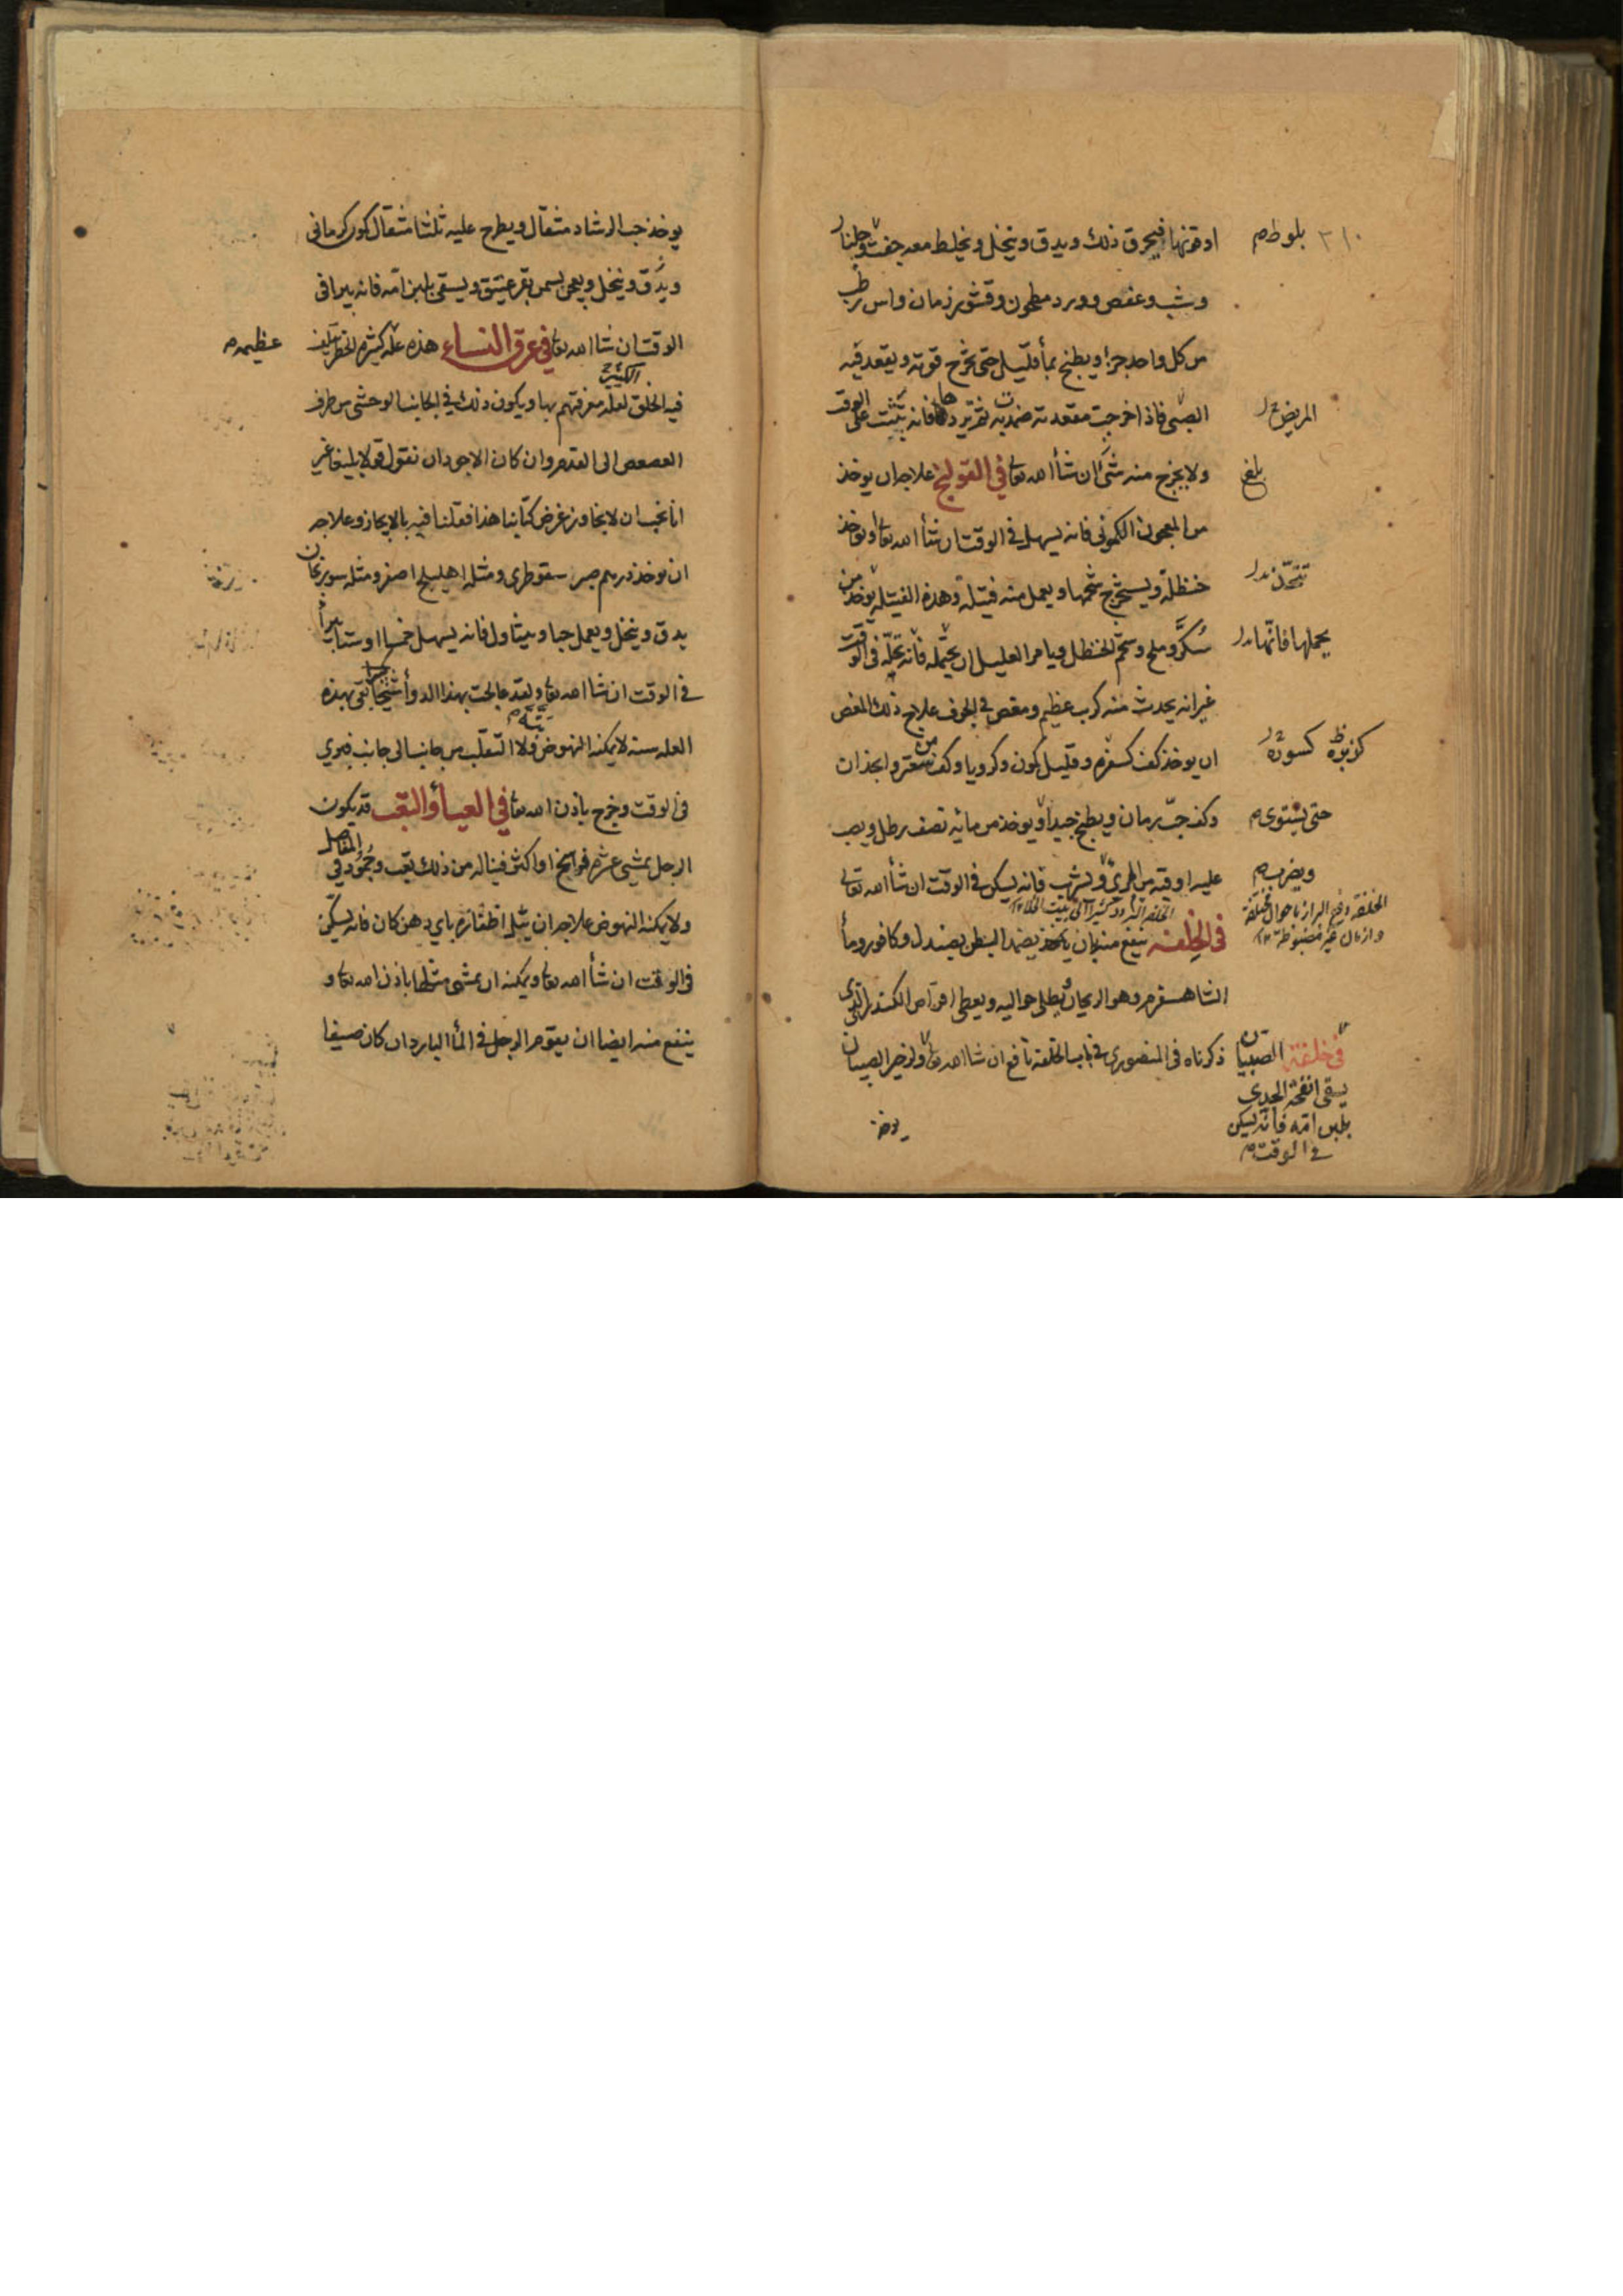 او قرنها فيحرق ذلك ويدق وينخل ويخلط معه جفت وجلنار
وشب وعفص وورد مطحون وقشور رمان واس رطب
من كل واحد جزأ ويطبخ بمأ قليل حتى تخرج قوته ويقعد فيه
الصبى فاذا خرجت مقعدته ضمدته فانه يثبت على الوقت
ولا يخرج منه شئ ان شأ الله تعا في القولنج علاجه ان يوخذ
من المعجون الكمونى فانه يسهل في الوقت ان شأ الله تعا او يوخذ
حنظلة ويستخرج شحمها ويعمل منه فتيلة وهذه الفتيلة يوخذ من
سكر وملح وشحم الحنظل ويامر العليل ان يحتمله فانه يحله في الوقت
غير انه يحدث منه كرب عظيم ومغص في الجوف علاج ذلك المغص
ان يوخذ كف كسفرم وقليل كمون وكرويا وكف من سعتر وانجذان
وكف حب رمان ويطبخ جيدا ويوخذ من مائه نصف رطل ويصب
عليه اوقيه من المرى ويشرب فانه يسكن في الوقت ان شأ الله تعالى
في الخلفه ينفع منه ان يضمد البطن بصندل وكافور ومأ
الشاهسفرم وهو الريحان يطلى حواليه ويعطى اقراص الكندر التى
ذكرناه في المنصورى في باب الخلفه نافع ان شا الله تعا ولزحير الصبيان
يوخذ
٢١٠
بلوط م
المريض
بلغ
يحملها فانها
كزبرة كسورة
حتى يستوى م
ويضرب م
في خلفة الصبيان
يسقى انفحة الجدى
بلبن امه فانه يسكن
في الوقت م
يوخذ حب الرشاد مثقال ويطرح عليه ثلثا مثقال كمون كرمانى
ويدق وينخل ويعجن بسمن بقر عتيق ويسقى بلبن امه فانه يبرا في
الوقت ان شا الله تعا في عرق النساء هذه علة كثيرة الخطر تلف
عظيمه م
فيه الخلق الكثير لقلة معرفتهم بها ويكون ذلك في الجانب الوحشى من طرف
العصعص الى القدم وان كان الاجود ان نقول قولا بليغا غير
انا نحب ان لا نجاوز غرض كتابنا هذا فقلنا فيه بالايجاز وعلاجه
ان يوخذ درهم صبر سقوطرى ومثله اهليلج اصفر ومثله سورنجان
يدق وينخل ويعمل حبا ويتناول فانه يسهل خمسا او ستا يبرأ
في الوقت ان شا الله تعا ولقد عالجت بهذا الدوأ شيخا بقى بهذه
العله سنة لا يمكنه النهوض ولا التقلب من جانب الى جانب فبرى
في الوقت وخرج باذن الله تعا في العيأ والتعب قد يكون
الرجل يمشى عشرة فراسخ او اكثر فيناله من ذلك تعب وجمود في المفاصل
ولا يمكنه النهوض علاجه ان يطلى اظفاره باي دهن كان فانه يسكن
في الوقت ان شأ الله تعا ويمكنه ان يمشى مثلها باذن الله تعا و
ينفع منه ايضا ان يقوم الرجل في المأ البارد ان كان صيفا